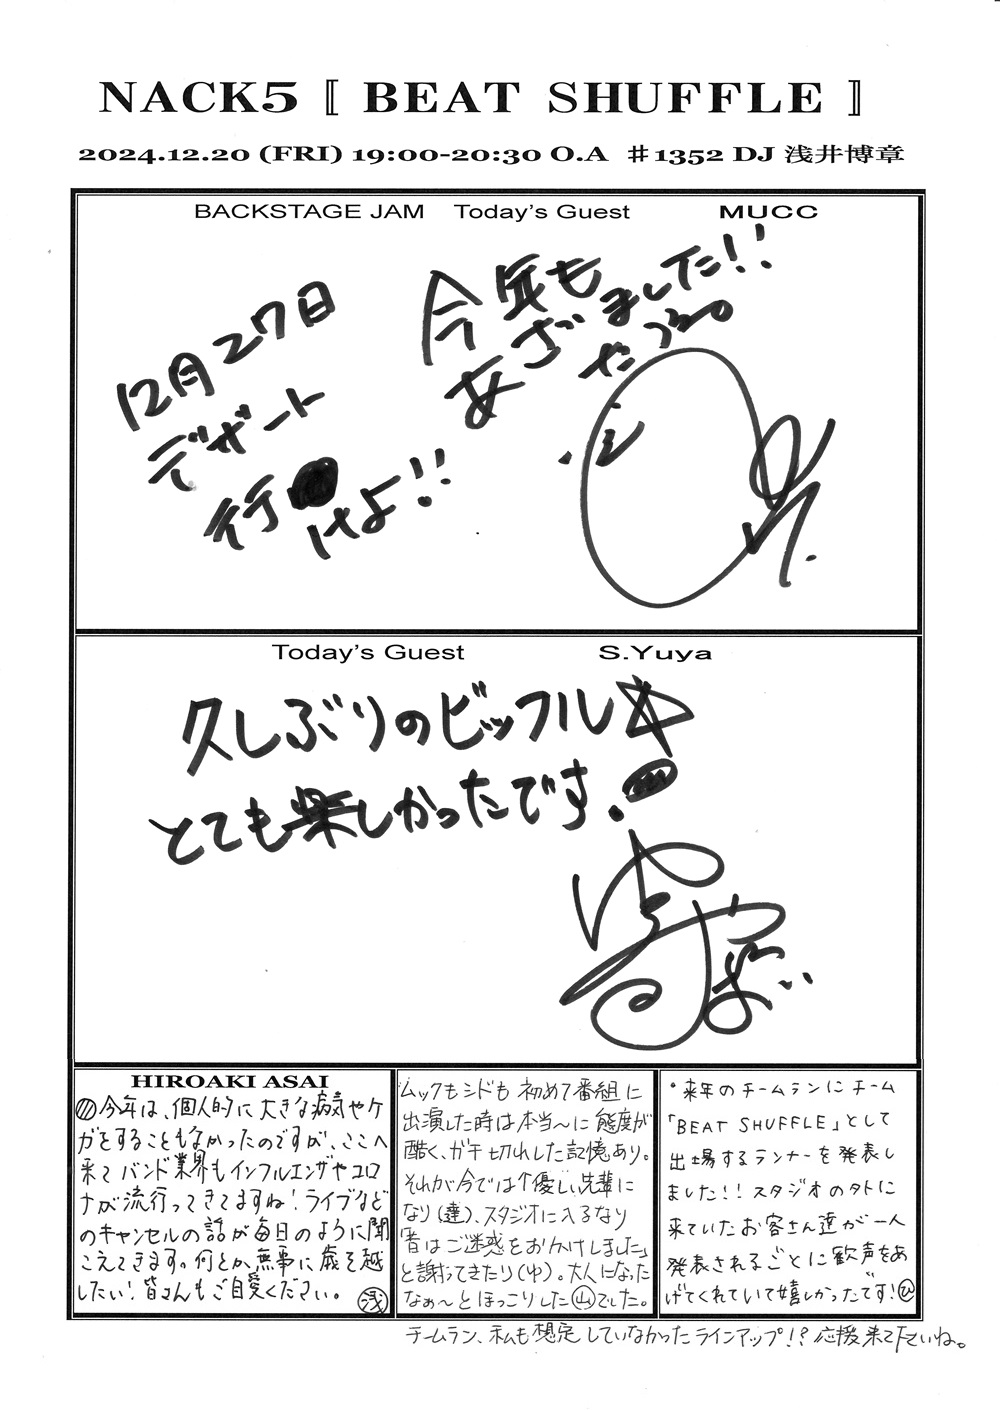 NACK5 〚 BEAT SHUFFLE 〛
2024.12.20 (FRI) 19:00-20:30 O.A ♯1352 DJ 浅井博章
BACKSTAGE JAM Today's Guest MUCC
今年も
あざました!!
12月27日
デザート
行けよ!!
Today's Guest S.Yuya
久しぶりのビッフル
とても楽しかったです!
HIROAKI ASAI
今年は、個人的に大きな病気やケ
ガをすることもなかったのですが、ここへ
来てバンド業界もインフルエンザやコロ
ナが流行ってきてますね!ライブなど
のキャンセルの話が毎日のように聞
こえてきます。何とか無事に歳を越
したい!皆さんもご自愛ください。 浅
ムックもシドも初めて番組に
出演した時は本当〜に態度が
酷く、ガチ切れした記憶あり。
それが今では↑優しい先輩に
なり(達)、スタジオに入るなり
「昔はご迷惑をおかけしました」
と謝ってきたり(ゆ)。大人になった
なぁ〜とほっこりした山でした。
・来年のチームランにチーム
「BEAT SHUFFLE」として
出場するランナーを発表し
ました!!スタジオの外に
来ていたお客さん達が一人
発表されるごとに歓声をあ
げてくれていて嬉しかったです!ひ
チームラン、私も想定していなかったラインアップ!?応援来て下さいね。